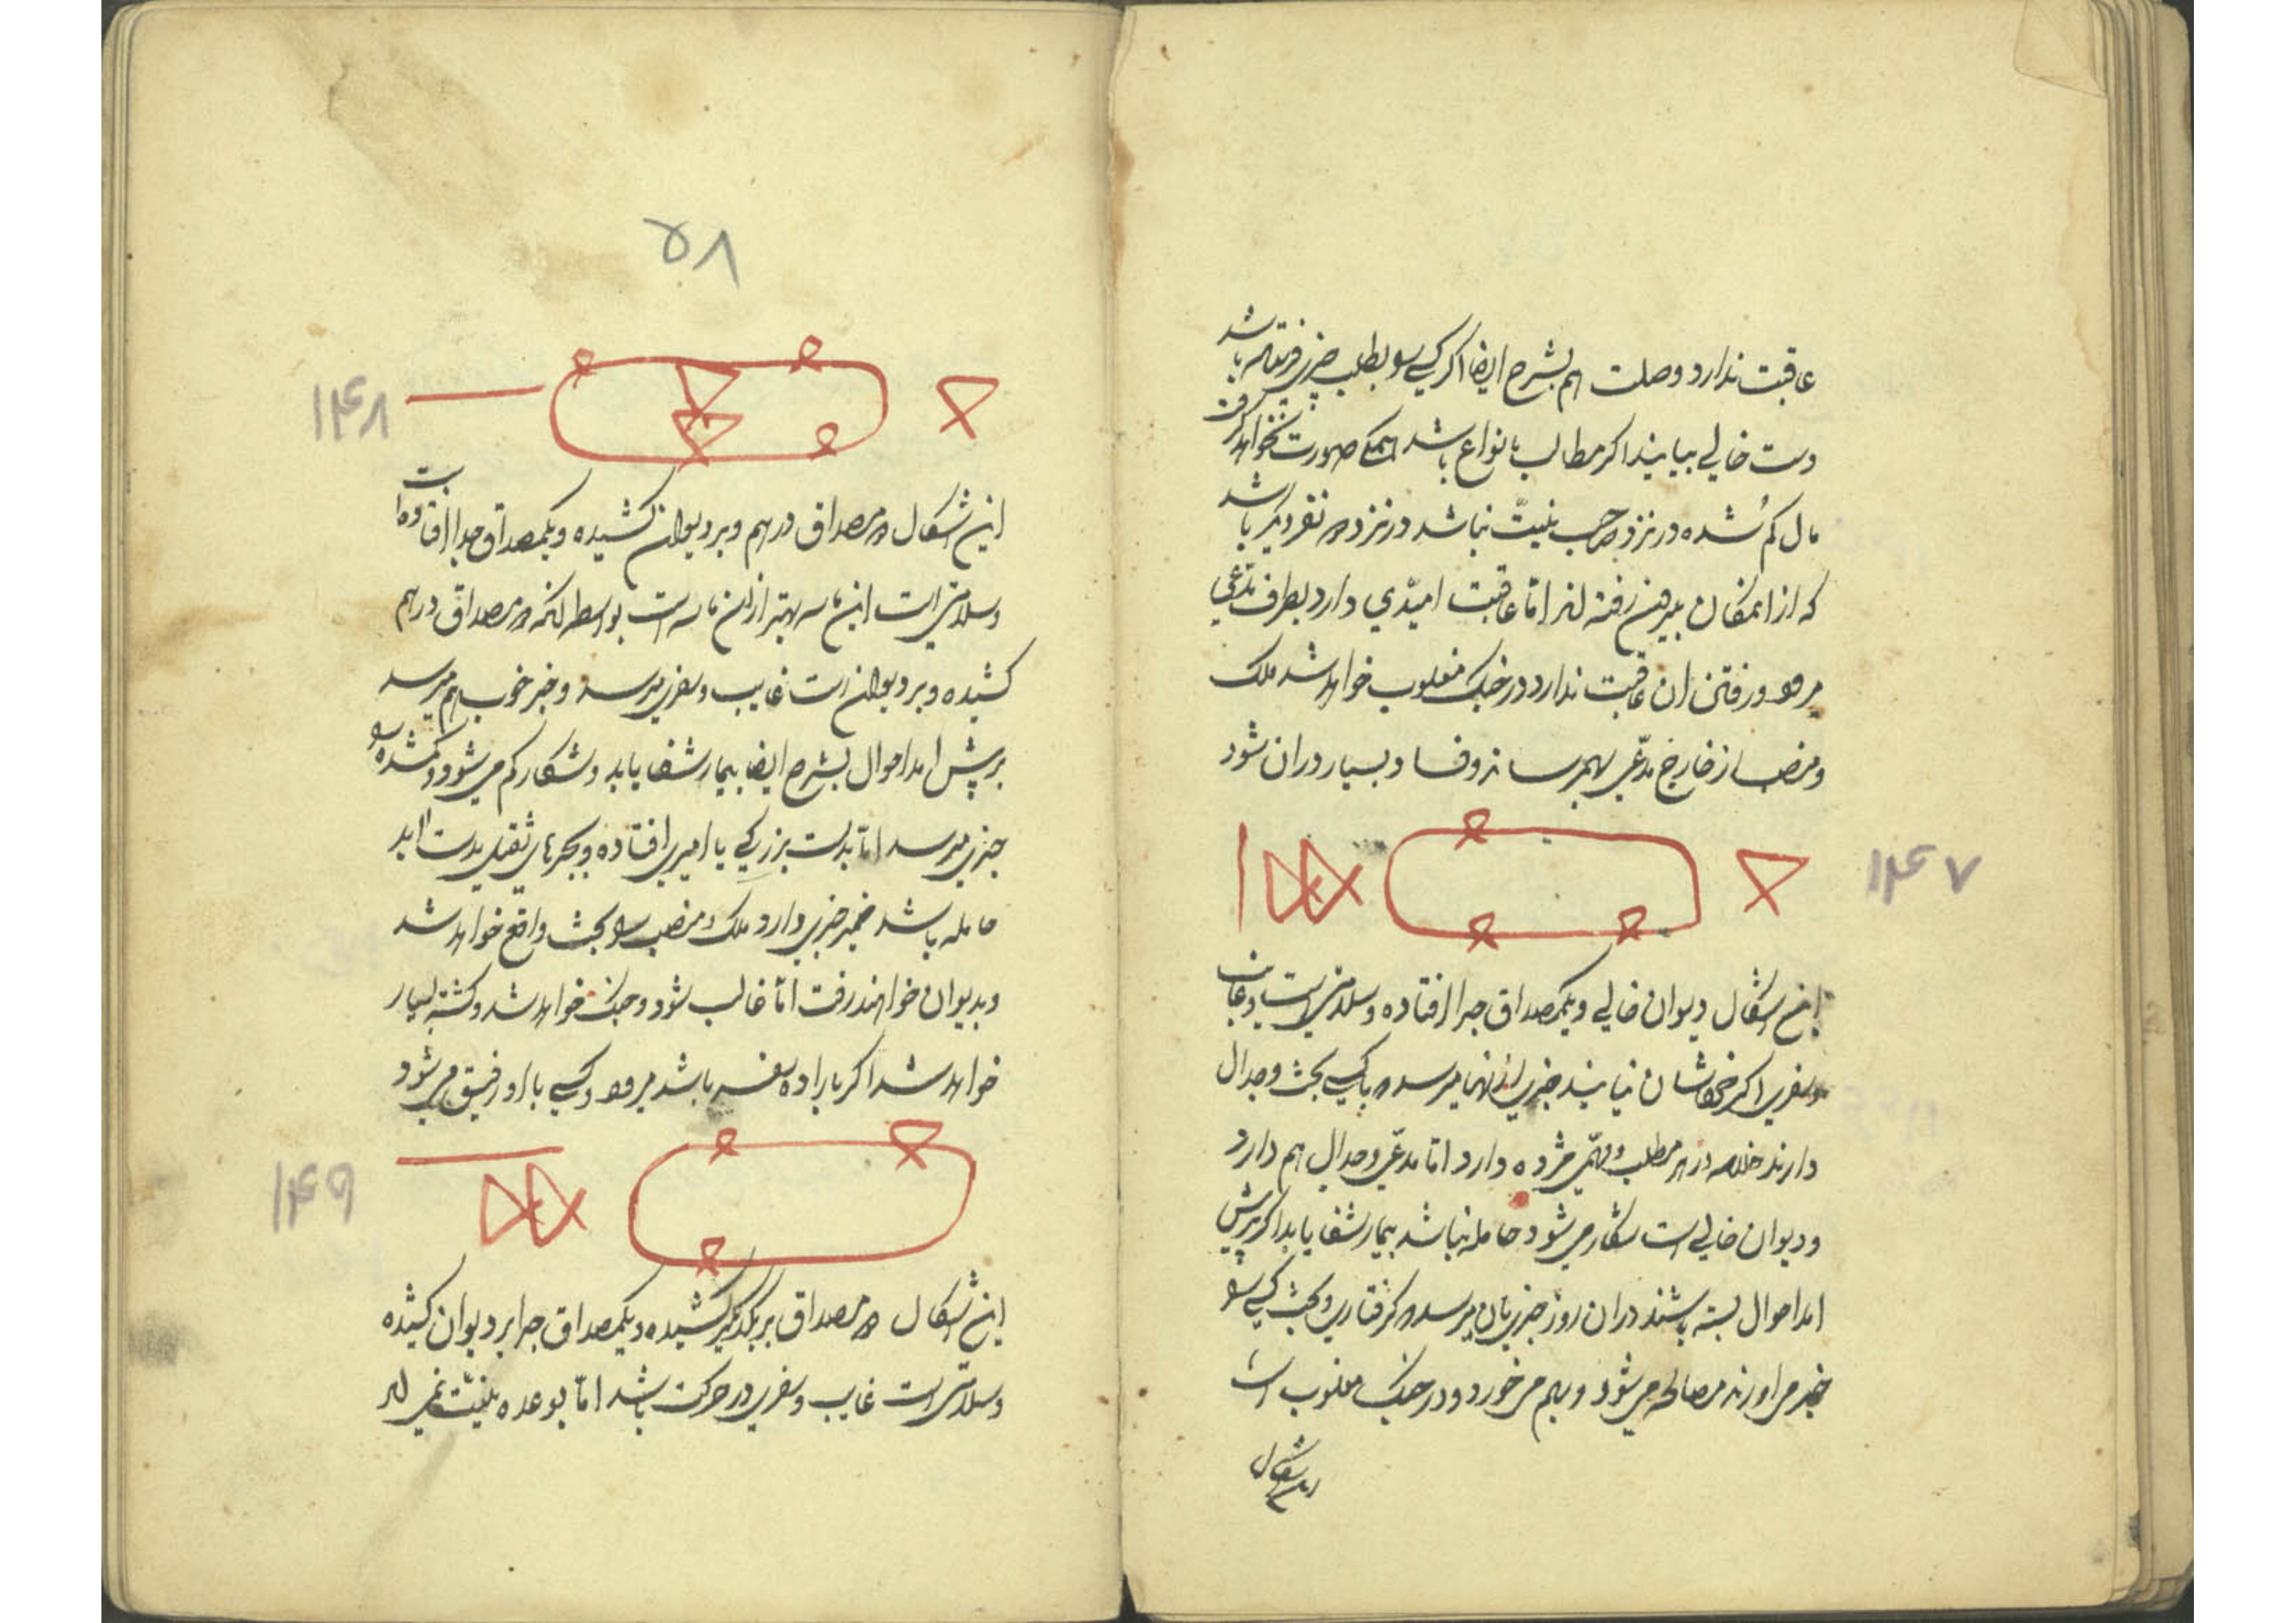 عاقبت ندارد وصلت هم بشرح ایضا اکر کسی سو بطلب چیزی فرستاده باشد
دست خالی بیایند اکر مطالب بانواع باشد همکی صورت نخواهد کرفت
مال کم شده در نزد صاحب نیت نباشد در نزد نفر دیکر باشد
که از امکان بیرون رفته اند اما عاقبت امیدی دارد بطرف مدعی
مرو و رفتن ان عاقبت ندارد در جنک مغلوب خواهد شد ملک
و منصب از خارج مدعی بهمرساند و فساد بسیار در ان شود
۱۴۷
این اشکال دیوان خالی و یکمصداق جدا افتاده و سلامتی است و غایب
و سفری اکر خودشان نیایند خبری از انها میرسد با کسی بحث و جدال
دارند خلاصه در هر مطلب و مهمی مژده دارد اما مدعی و جدال هم دارد
و دیوان خالی است شکار می شود حامله نباشد بیمار شفا یابد اکر پرسش
امداحوال بسته باشند در ان روز خبری بان میرسد کرفتاری و بحث کسی سو
خبر می اورند مصالحه می شود و بهم می خورد و در جنک مغلوب است
این اشکال
۵۸
۱۴۸
این اشکال مصداق در هم و بر دیوان کشیده و یکمصداق جدا افتاده است
و سلامتی است این خانه بهتر از ان خانه است بواسطه انکه مصداق در هم
کشیده و بر دیوان است غایب و سفری میرسد و خبر خوب هم میرسد
پرسش امداحوال بشرح ایضا بیمار شفا یابد و شکار کم می شود و کمشده سو
خبری میرسد اما بدست بزرکی یا امیری افتاده و بجرهای ثقیل بدست اید
حامله باشد خمیر خبری دارد ملک و منصب سو بحث واقع خواهد شد
و بدیوان خواهند رفت اما غالب شود و جنک خواهد شد و کشته بسیار
خواهد شد اکر باراده سفر باشد مرو و کسی با او رفیق می شود
۱۴۹
این اشکال مصداق بر یکدیکر کشیده و یکمصداق جدا بر دیوان کشیده
و سلامتی است غایب و سفری در حرکت باشد اما بوعده نیت نمی اید